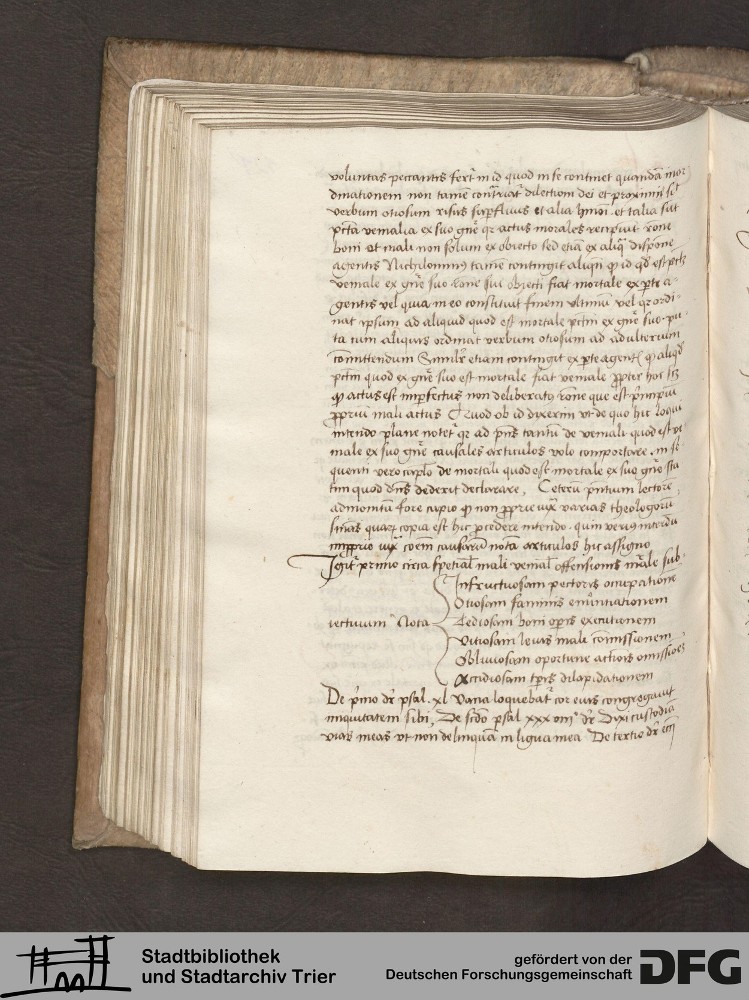 voluntas peccantis fert̄ in id quod in se continet quandā inor
dinationem non tamē contrariāt dilectioni dei et proximi sic̄
verbum otiosum risus supfluus et alia hmōi et talia sūt
pctā venialia ex suo gn̄e qr actus morales recipiūt rōne
boni vt mali non solum ex obiecto sed etiā ex aliq̄ dispōne
agentis Nichilominꝰ tamē contingit aliqn̄ ꝙ id qd̄ est pctm̄
veniale ex gn̄e suo rōne sui obiecti fiat mortale ex pte a-
gentis vel quia in eo constituit finem vltimū vel qr ordi-
nat ipsum ad aliquid quod est mortale pctm̄ ex gn̄e suo. pu-
ta cum aliquis ordinat verbum otiosum ad adulterium
cōmittendum Similr̄ etiam contingit ex pte agentꝭ ꝙ aliqd̄
pctm̄ quod ex gn̄e suo est mortale fiat veniale ꝓpter hoc scꝫ
ꝙ actus est imperfectus non deliberatꝰ rōne que est pⁱncipiū
ꝓpriū mali actus Quod ob id dixerim vt de quo hic loqui
intendo plane notet̄ qr ad pn̄s tantū de veniali quod est ve
niale ex suo gn̄e causales articulos volo comportare. in se
quenti vero caplō de mortali quod est mortale ex suo gn̄e sta
tim quod dn̄s dederit declarare, Ceterū pn̄tium lectorē
admonitū fore cupio ꝙ non ꝓprie iuxᵃ varias theologorū
sn̄ias quarꝫ copia est hic pcedere intendo. quin verius interdū
impprie iuxᵃ cōem causarū notā articulos hic assigno
Igit̄ primo circa spetial̄ mali venial offensionis mā̄le sub-
Infructuosam pectoris occupationē
Otiosam faminis enūtiationem
iectiuum Nota Tediosam boni opis executionem
Vitiosam leuis mali cōmissionem
Obliuiosam oportune actiōis omissiōeꝫ
Accidiosam tpis dilapidationem
De pⁱmo dr̄ psal. xl Vana loquebat̄ cor eius congregauit
iniquitatem sibi, De scdo psal xxxviijᵒ dr̄ Dixi custodiā
vias meas vt non delinquā in ligua mea De tertio dr̄ eccī
Stadtbibliothek
und Stadtarchiv Trier
gefördert von der
Deutschen Forschungsgemeinschaft
DFG